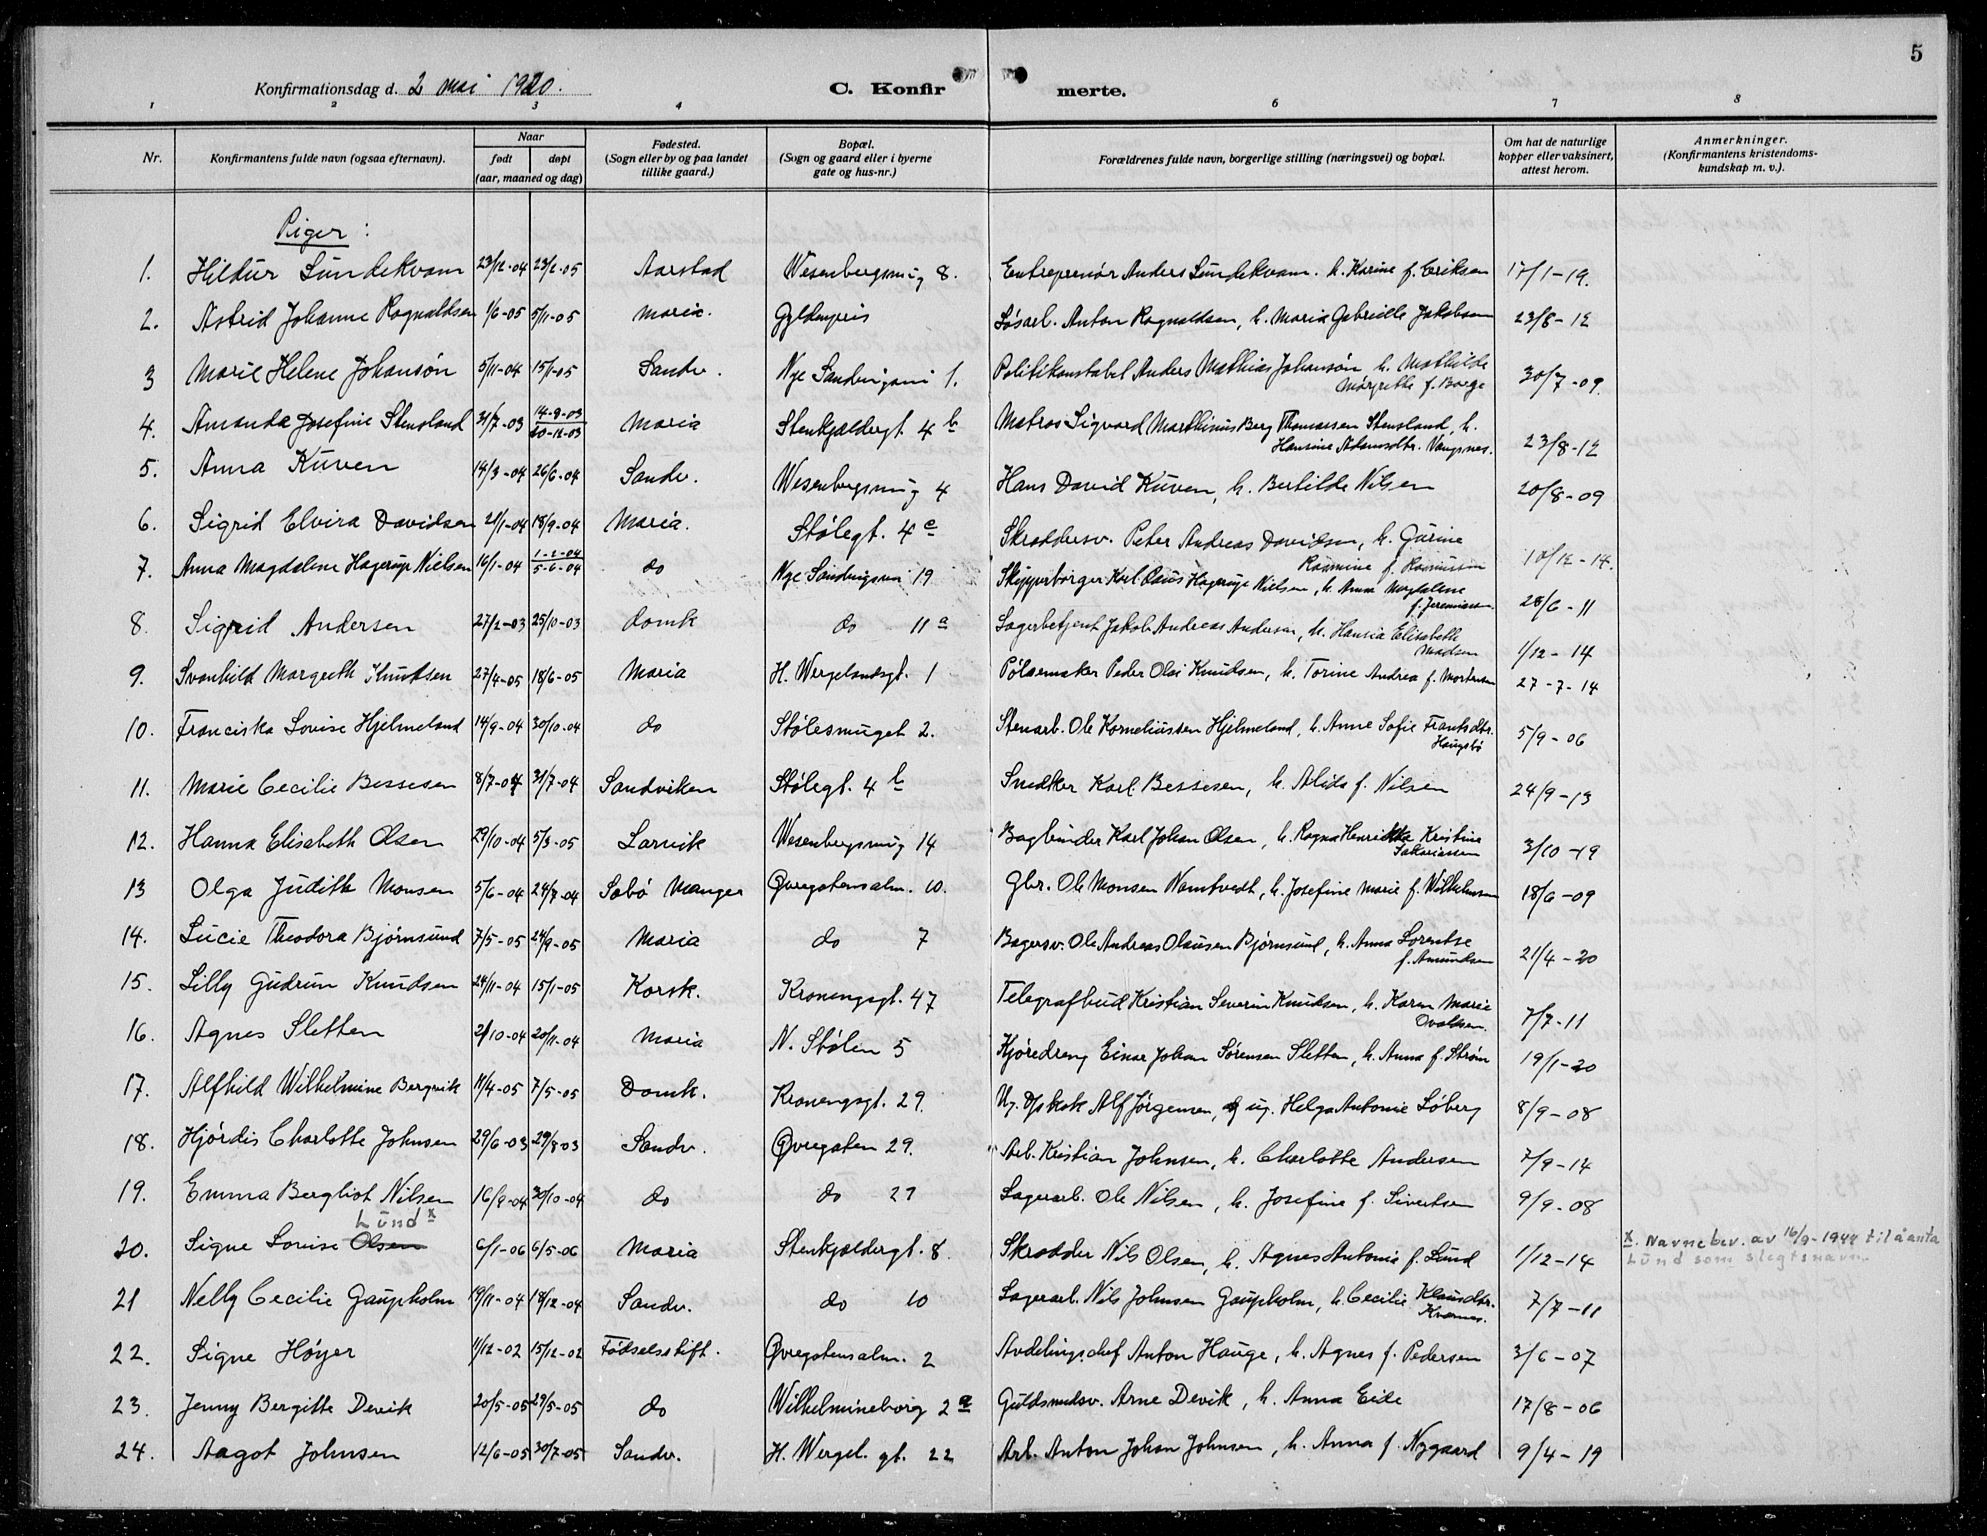 5
Konfirmationsdag d. 2 mai 1920.
C. Konfirmerte.
1 2 3 4 6 7 8
Nr.
Konfirmantens fulde navn (ogsaa efternavn).
Naar
født døpt
(aar, maaned og dag)
Fødested.
(Sogn eller by og paa landet
tillike gaard.)
Bopæl.
(Sogn og gaard eller i byerne
gate og hus-nr.)
Forældrenes fulde navn, borgerlige stilling (næringsvei) og bopæl.
Om hat de naturlige
kopper eller vaksinert,
attest herom.
Anmerkninger.
(Konfirmantens kristendoms-
kundskap m. v.).
Piger:
1. Hildur Sundekvam 23/12-04 23/2-05 Aarstad Wesenbergsmug 8. Entreprenør Anders Sundekvam. h. Karine f. Eriksen 17/1-19.
2. Astrid Johanne Ragnaldsen 1/6-05 5/11-05 Maria. Gyldenpris Løsarb. Anton Ragnaldsen, h. Maria Gabrielle Jakobsen 23/8-12
3 Marie Helene Johansøn 5/11-04 15/1-05 Sandv. Nye Sandviksvei 1. Politikonstabel Anders Mathias Johansøn h. Mathilde
Margrethe f. Borge 30/7-09.
4. Amanda Josefine Stensland 31/7-03 14-9-03
20-12-03 Maria Stenkjældergt. 4 b Matros Sigvard Marthinus Berg Thomassen Stensland, h.
Hansine Adamsdtr. Vangsnes. 23/8-12
5. Anna Kuven 14/3-04 26/6-04 Sandv. Wesenbergsmug 4 Hans David Kuven, h. Bertilde Nilsen 20/8-09
6. Sigrid Elvira Davidsen 21/1-04 18/9-04 Maria. Stølegt. 4 c Skreddersv. Peter Andreas Davidsen, h. Gurine
Rasmine f. Rasmussen 10/12-14.
7. Anna Magdalene Hagerup Nielsen 16/1-04 1-2-04
5-6-04 do Nye Sandviksvei 19 Skipperborger Karl Claus Hagerup Nielsen, h. Anna Magdalene
f. Jeremiassen 28/6-11
8. Sigrid Andersen 27/2-03 25/10-03 Domk do 11 a Lagerbetjent Jakob Andreas Andersen, h. Hansia Elisabeth
Madsen 1/12-14
9. Svanhild Margreth Knudsen 27/4-05 18/6-05 Maria H. Wergelandsgt. 1 Pølsemaker Peder Olai Knudsen, h. Torine Andrea f. Mortensen 27-7-14
10. Franciska Lovise Hjelmeland 14/9-04 30/10-04 do Stølesmuget 2. Stenarb. Ole Korneliussen Hjelmeland, h. Anne Sofie Frantsdtr.
Haugsbø 5/9-06
11. Marie Cecilie Bessesen 8/7-04 31/7-04 Sandviken Stølegt. 4 b Snedker Karl Bessesen, h. Alida f. Nilsen 24/9-13
12. Hanna Elisabeth Olsen 29/10-04 5/3-05 Larvik Wesenbergsmug 14 Bagbinder Karl Johan Olsen, h. Ragna Henrikka Kristine
Sakariassen 3/10-19
13 Olga Judith Monsen 5/6-04 24/7-04 Sæbø Manger Øvregatensalm. 10. Gbr. Ole Monsen Namtvedt, h. Josefine Marie f. Wilhelmsen 18/6-09
14. Lucie Theodora Bjørnsund 7/5-05 24/9-05 Maria do 7 Bagersv. Ole Andreas Olausen Bjørnsund, h. Anna Lorentse
f. Amundsen 21/4-20
15. Lilly Gudrun Knudsen 24/11-04 15/1-05 Korsk. Kronengsgt. 47 Telegrafbud Kristian Severin Knudsen, h. Karen Marie
7/7-11
16. Agnes Sletten 2/10-04 20/11-04 Maria N. Stølen 5 Kjøredreng Einar Johan Sørensen Sletten, h. Anna f. Strøm 19/1-20
17. Alfhild Wilhelmine Bergvik 11/4-05 7/5-05 Domk. Kronengsgt. 29. Ug. Alf Jørgensen, og ug. Helga Antonie Løberg 8/9-08
18. Hjørdis Charlotte Johnsen 29/6-03 29/8-03 Sandv. Øvregaten 29. Arb. Kristian Johnsen, h. Charlotte Andersen 7/9-14
19. Emma Bergliot Nilsen 16/9-04 30/10-04 do do 27 Lagerarb. Ole Nilsen, h. Josefine f. Sivertsen 9/9-08
Lund x
20. Signe Lovise Olsen 6/1-06 6/5-06 Maria Stenkjældergt. 8. Skrædder Nils Olsen, h. Agnes Antonie f. Lund 1/12-14 x. Navnebev. av 16/9-1944 til å anta
Lund som slegtsnavn.
21 Nelly Cecilie Gaupholm 19/11-04 18/12-04 Sandv. do 10 Lagerarb. Nils Johnsen Gaupholm, h. Cecilie Klausdtr.
Kvarnes. 7/7-11
22. Signe Høyer 11/12-02 15/12-02 Fødselsstift. Øvregatensalm. 2 Avdelingschef Anton Hauge, h. Agnes f. Pedersen 3/6-07
23. Jenny Bergitte Devik 20/5-05 29/5-05 do Wilhelmineborg 2 a Guldsmedsv. Arne Devik, h. Anna Eide 17/8-06
24. Aagot Johnsen 12/6-05 30/7-05 Sandv. H. Wergel. gt. 22 Arb. Anton Johan Johnsen, h. Anna f. Nygaard 9/4-19